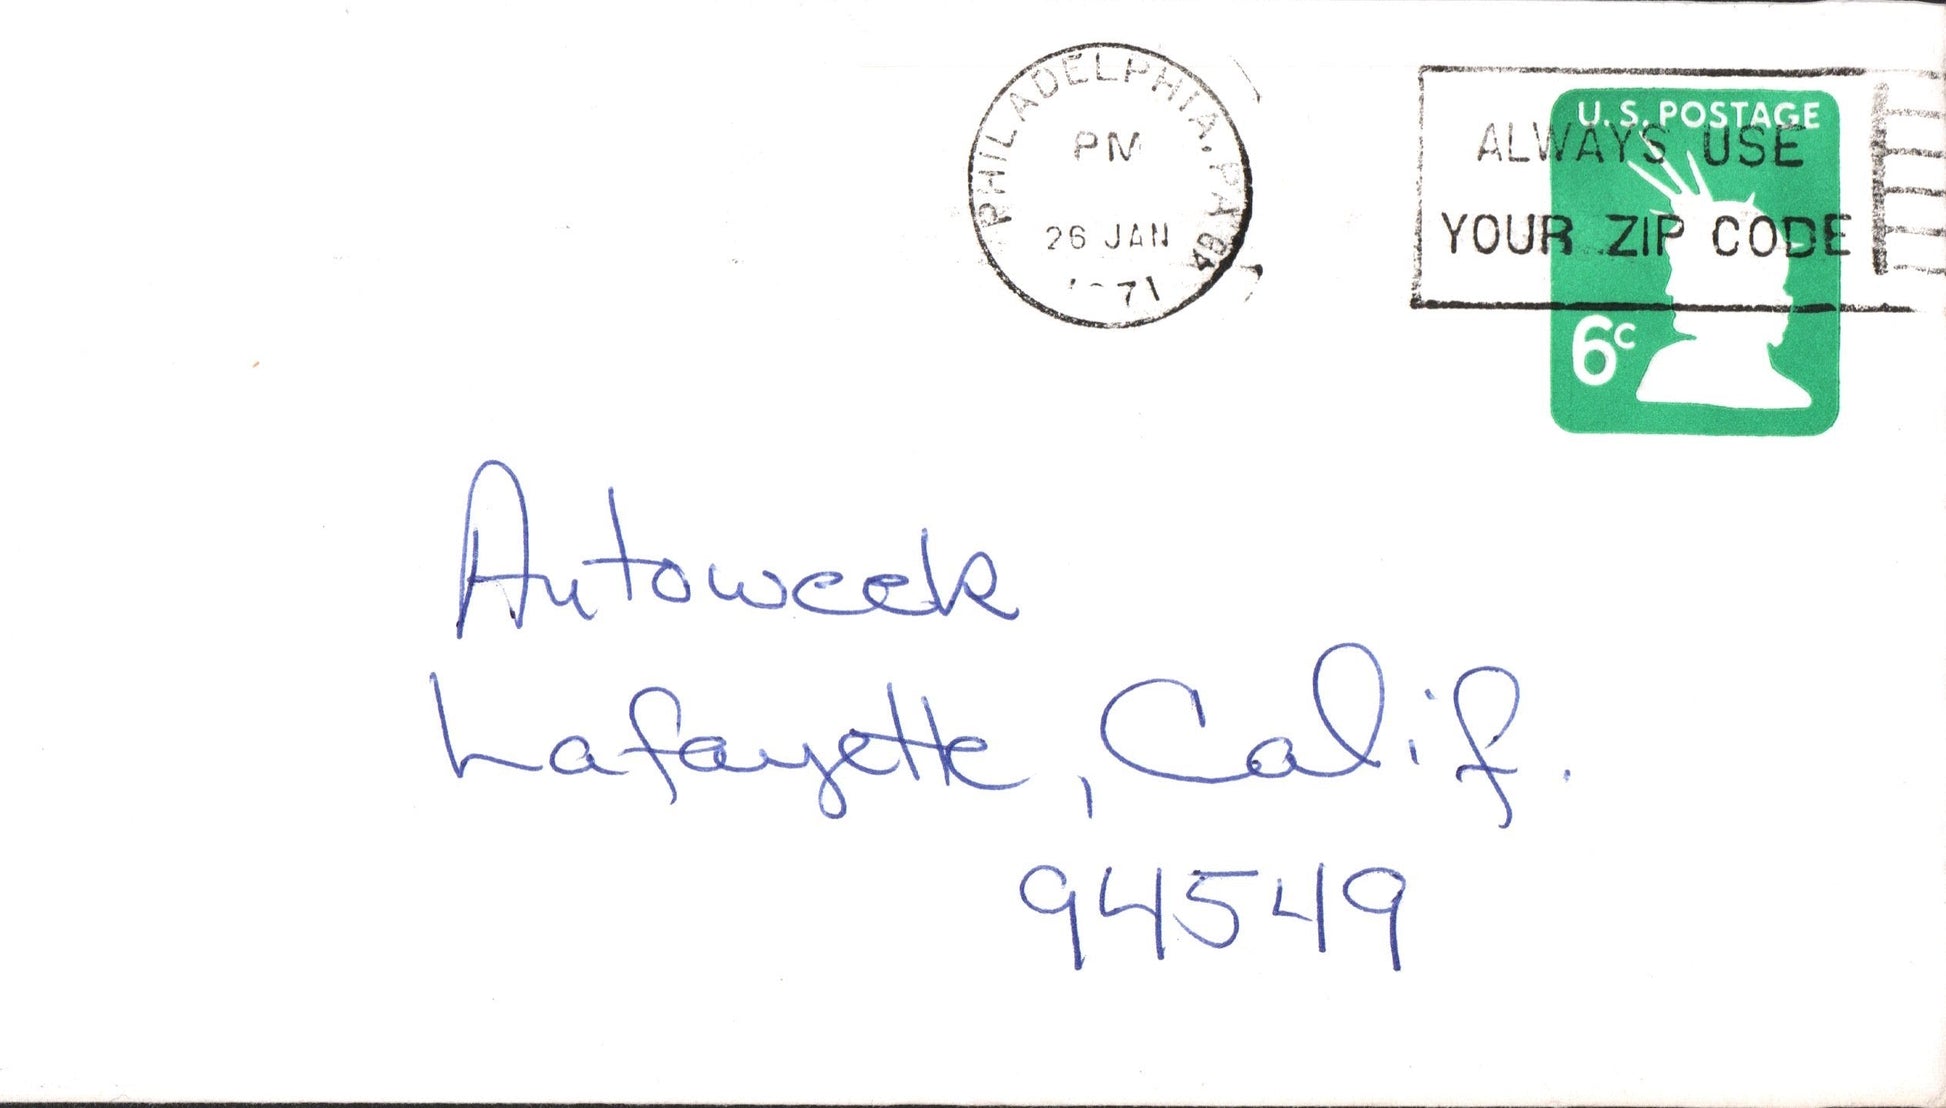 PHILADELPHIA, PA
PM
26 JAN
1971
ALWAYS USE
YOUR ZIP CODE
U.S. POSTAGE
6c
Autoweek
Lafayette, Calif.
94549